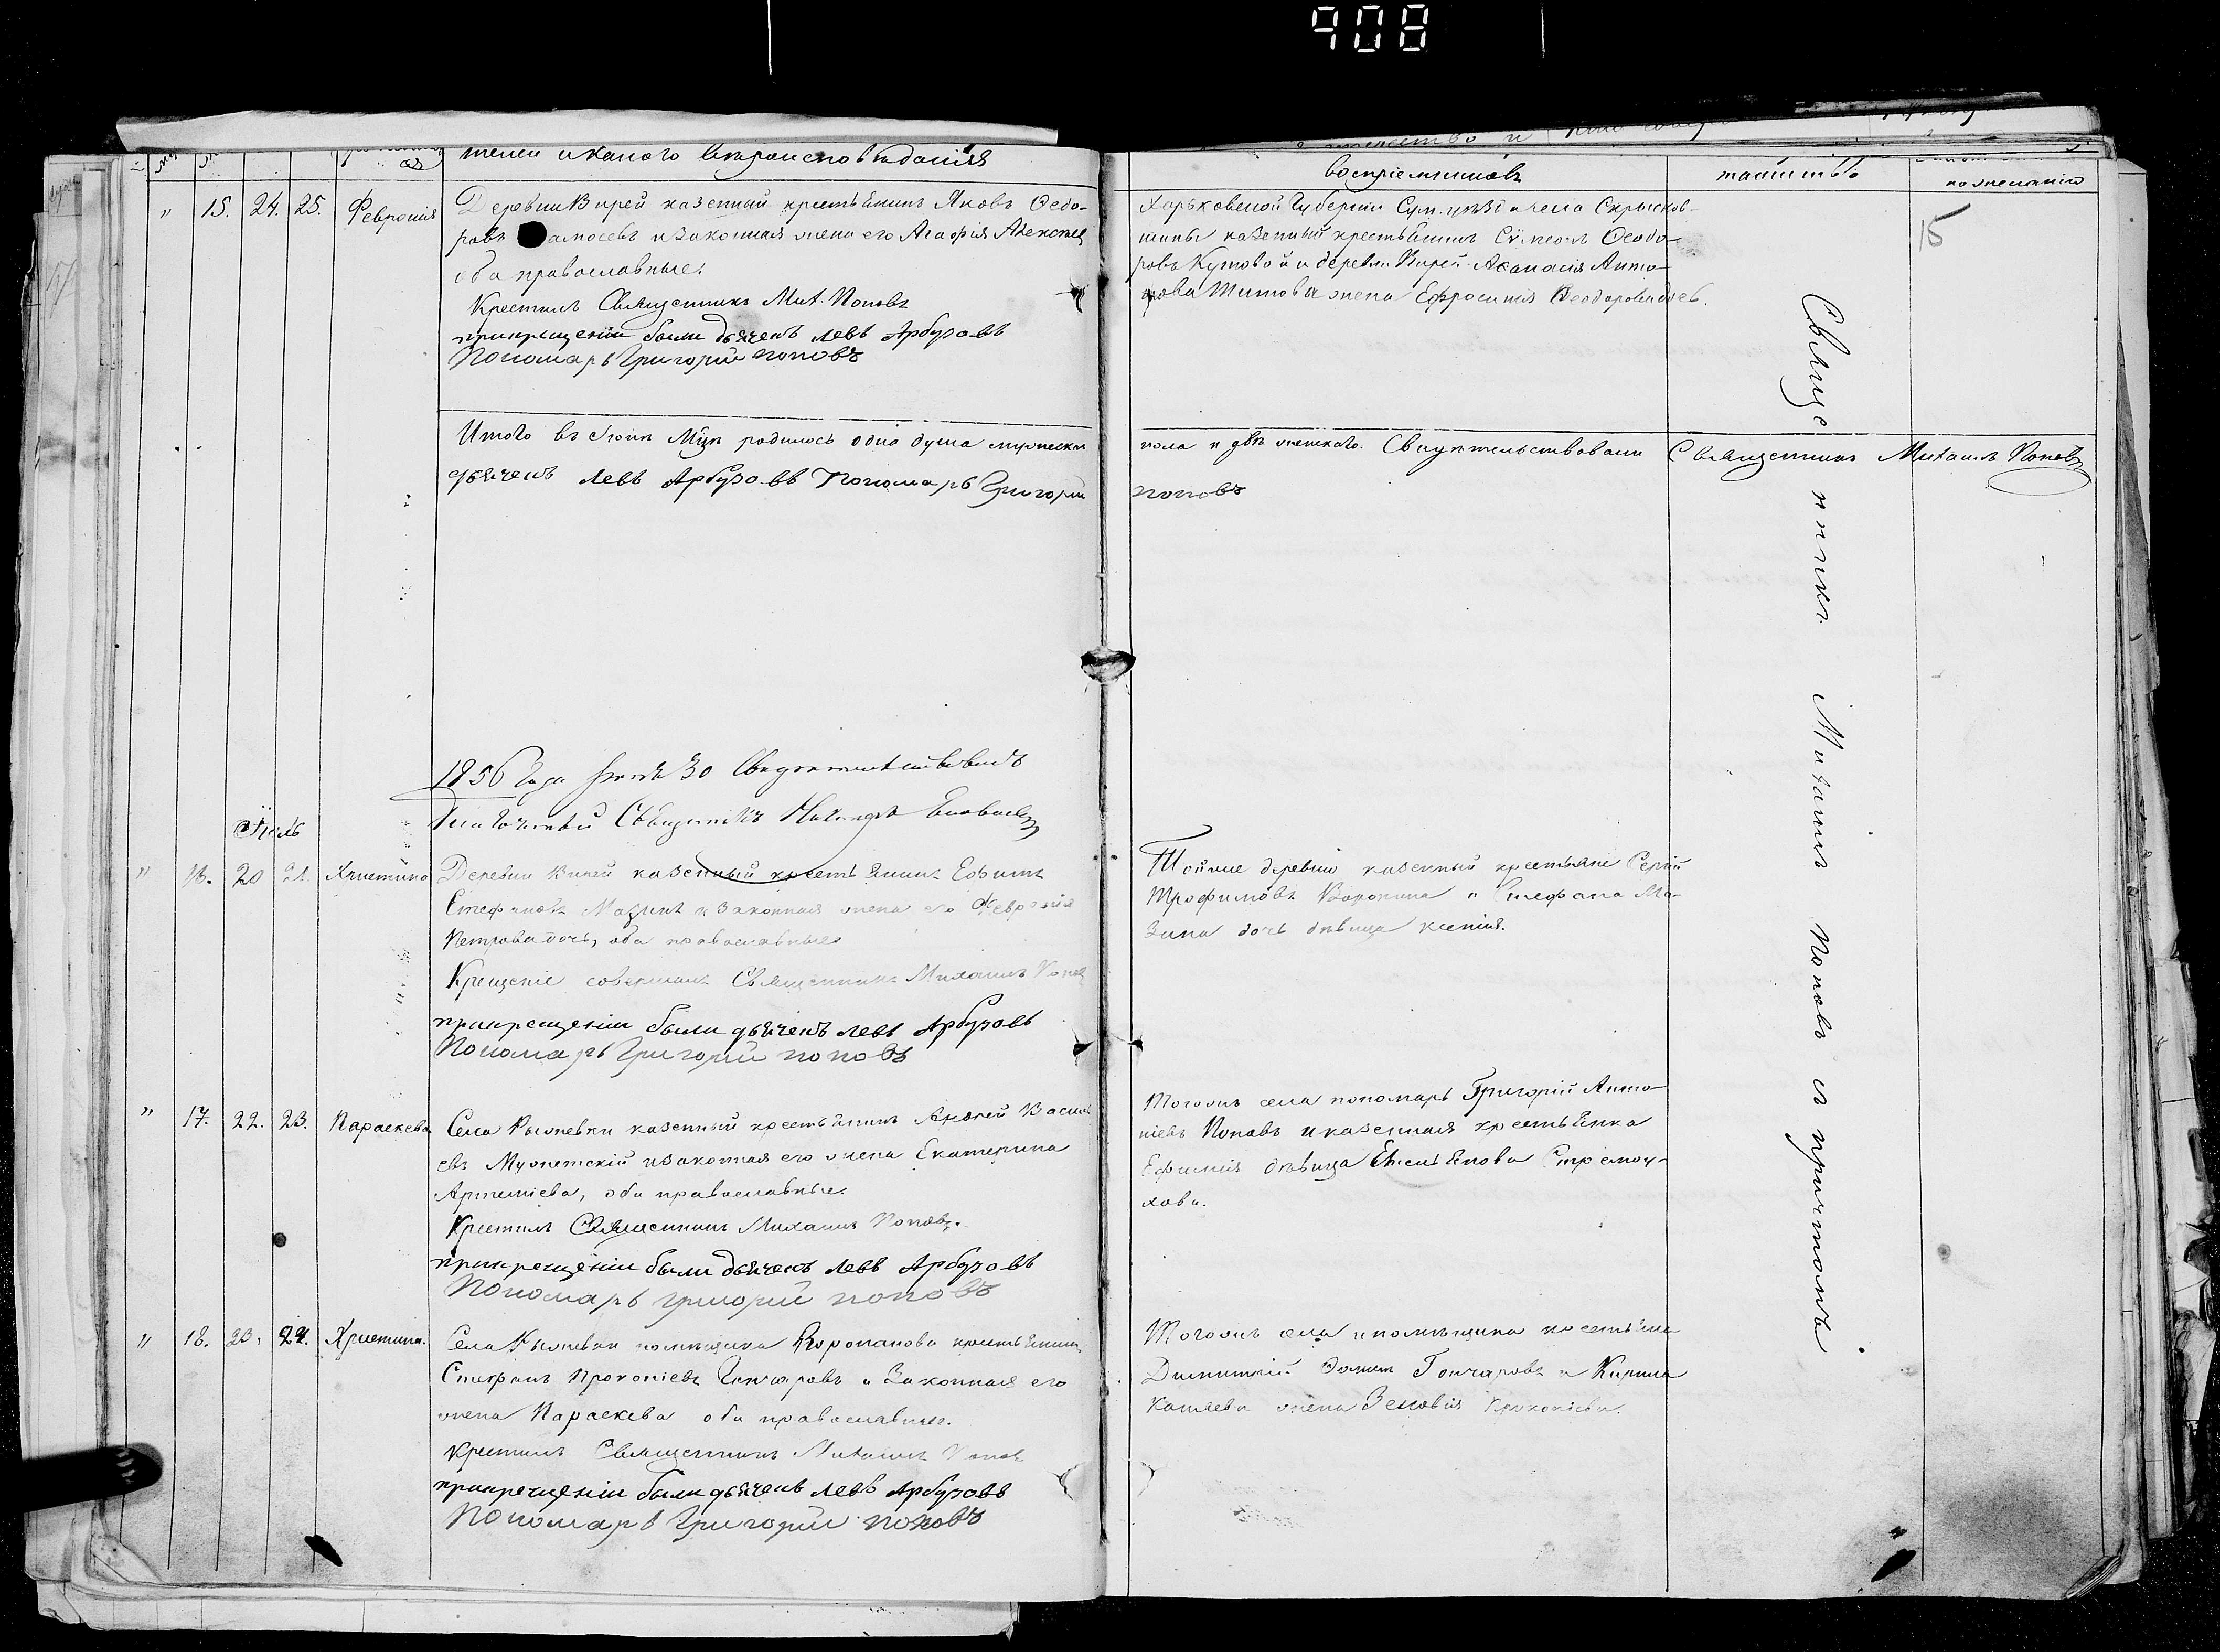 908
телей и какого вѣроисповѣданія
воспріемниковъ
таинство
по желанію
15
" 15. 24. 25. Февронія
Деревни Вирей казенный крестьянинъ Яковъ Ѳедо-
ровъ и законная жена его Агафія Алексѣе
оба православные.
Крестилъ Священникъ Мих. Поповъ
при крещеніи были дьячекъ Левъ Арбузовъ
Пономарь Григорій Поповъ
Харьковской Губерніи Сум. уѣзда села
казенный крестьянинъ Сѵмеонъ Ѳеодо-
ровъ Кутовой и деревни Вирей Аѳанасія Анто-
нова Титова жена Ефросинія Ѳеодорова
Итого въ Іюнѣ Мцѣ родилось одна душа мужеска
пола и двѣ женскаго. Свидѣтельствовали Священникъ Михаилъ Поповъ
дьячекъ Левъ Арбузовъ Пономарь Григорій
Поповъ
1856 Года 30 Свидѣтельствовалъ
Благочинный Священникъ
Іюль
" 20 21. Христина
Деревни Вирей казенный крестьянинъ Ефимъ
Стефановъ Мазинъ и законная жена его Февронія
Петрова дочь, оба православные
Крещеніе совершалъ Священникъ Михаилъ Попов
при крещеніи были дьячекъ Левъ Арбузовъ
Пономарь Григорій Поповъ
Тойже деревни казенный крестьяне Сергій
Трофимовъ Воронина и Стефана Ма-
зина дочь дѣвица Ксенія.
" 17. 22. 23. Параскева
Села казенный крестьянинъ Андрей Василь
евъ Мужетскій и законная его жена Екатерина
Артеміева, оба православные.
Крестилъ Священникъ Михаилъ Поповъ.
при крещеніи были дьячекъ Левъ Арбузовъ
Пономарь Григорій Поповъ
Тогожъ села пономарь Григорій Анто-
ніевъ Поповъ и казенная крестьянка
Ефимія дѣвица Емельянова
хова.
" 18. 23. 24. Христина.
Села помѣщика крестьянинъ
Стефанъ Прокопіевъ Гончаровъ и Законная его
жена Параскева оба православные.
Крестилъ Священникъ Михаилъ Попов
при крещеніи были дьячекъ Левъ Арбузовъ
Пономарь Григорій Поповъ
Тогожъ села и помѣщика крестьяне
Димитрій Гончаровъ и Кирила
жена Зеновія Прокопіева.
Священникъ Михаилъ Поповъ съ причтомъ